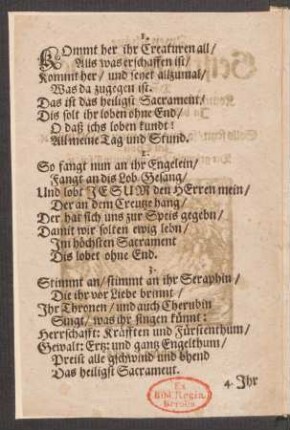 1.
KOmmt her ihr Creaturen all/
Alls was erschaffen ist/
Kommt her/ und sehet allzumal/
Was da zugegen ist.
Das ist das heiligst Sacrament/
Dis solt ihr loben ohne End/
O daß ichs loben kundt!
All meine Tag und Stund.
2.
So fangt nun an ihr Engelein/
Fangt an dis Lob-Gesang/
Und lobt JESUM den HErren mein/
Der an dem Creutze hang/
Der hat sich uns zur Speis gegebn/
Damit wir solten ewig lebn/
Im höchsten Sacrament
Dis lobet ohne End.
3.
Stimmt an/ stimmt an ihr Seraphin/
Die ihr vor Liebe brinnt/
Ihr Thronen/ und auch Cherubin
Singt/ was ihr singen künnt:
Herrschafft: Kräfften und Fürstenthum/
Gewalt: Ertz: und gantz Engelthum/
Preist alle gschwind und bhend
Das heiligst Sacrament.
4. Ihr
Ex
Bibl. Regia
Berolin.